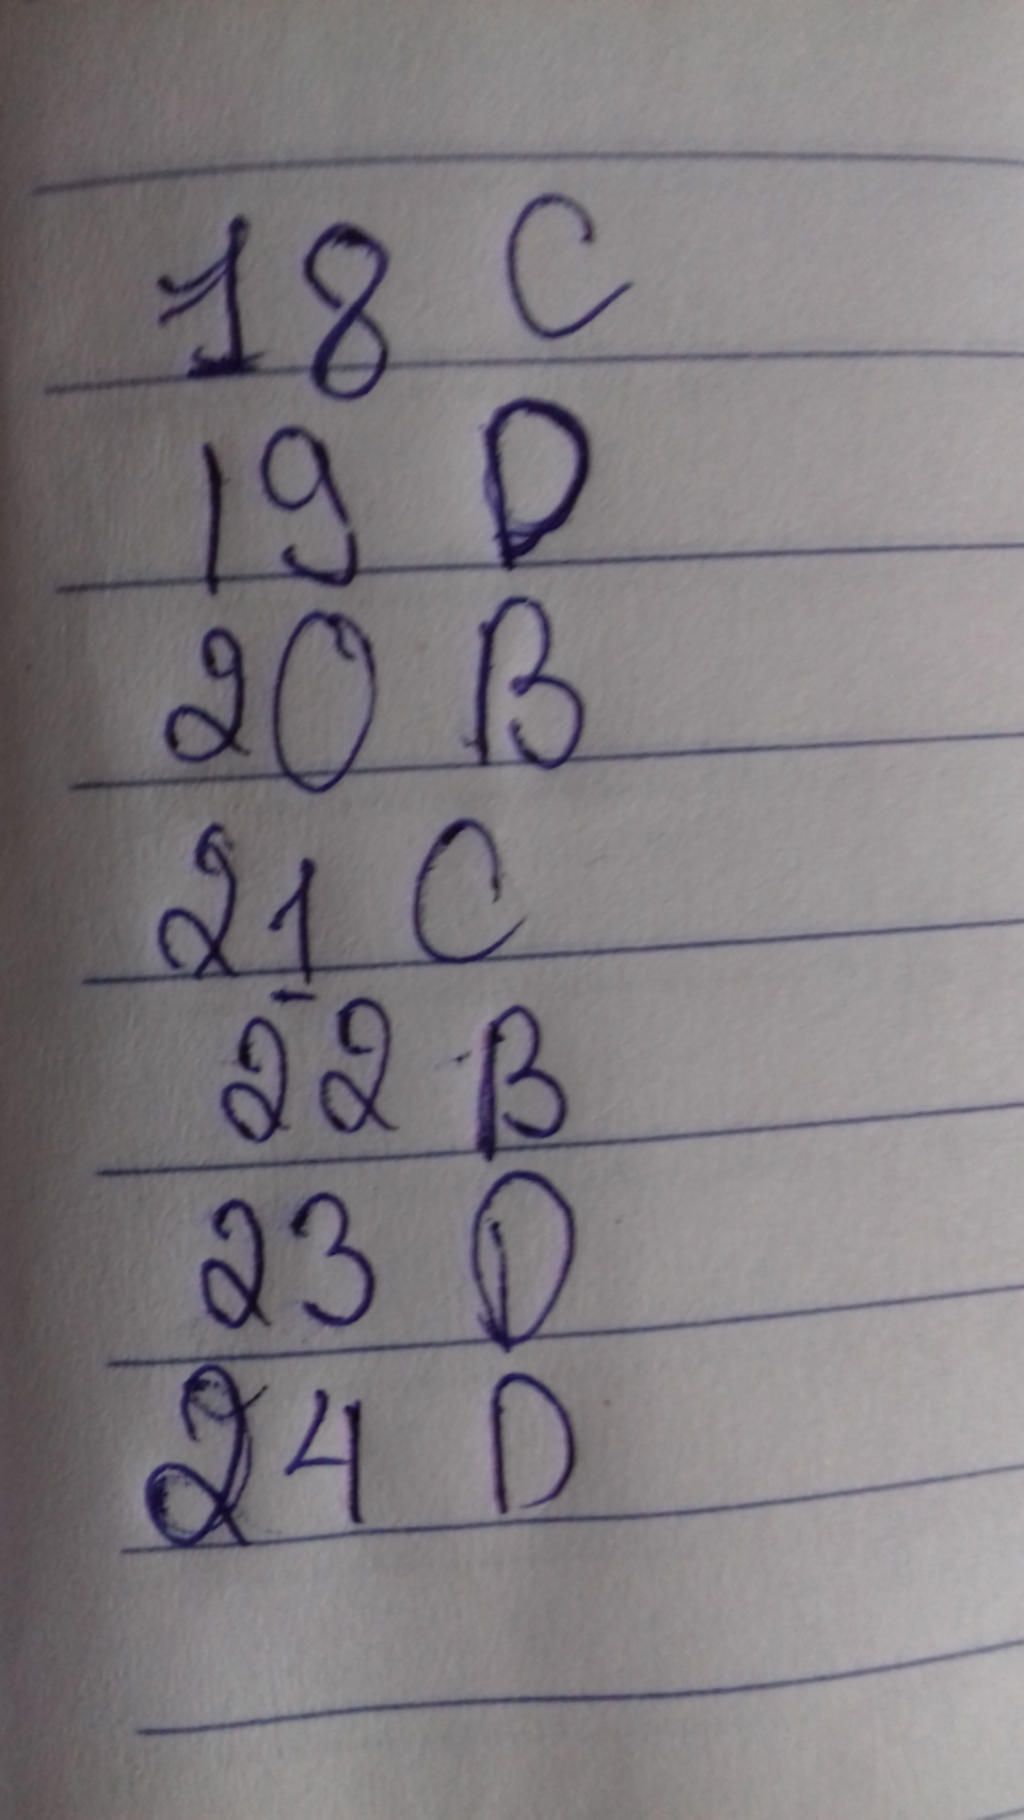 18 C
19 D
20 B
21 C
22 B
23 D
24 D